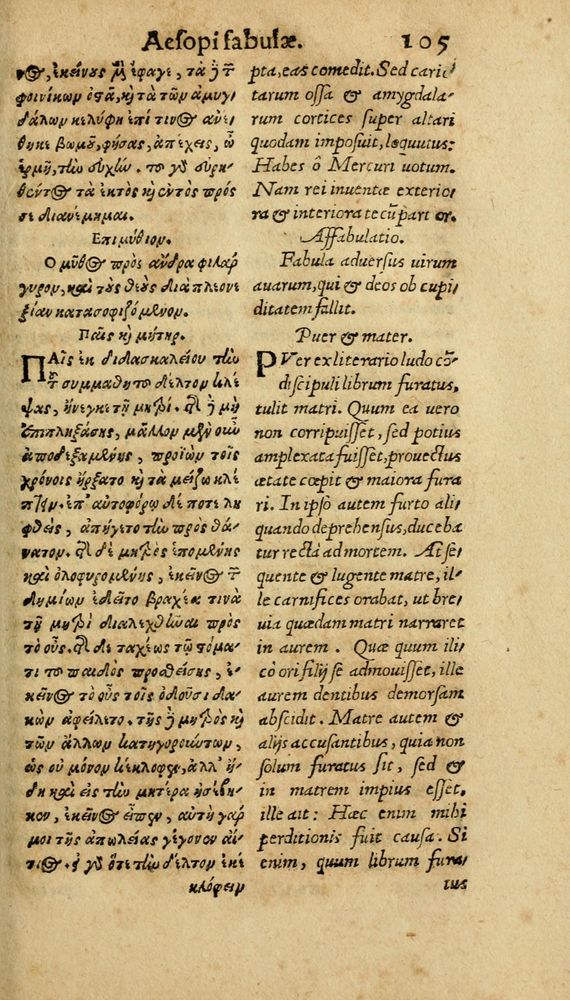 Aesopi fabulæ. 105
νος, ἐκείνους μὲν ἔφαγε, τὰ δὲ τῶν
φοινίκων ὀστᾶ, καὶ τὰ τῶν ἀμυγ/
δάλων κελύφη ἐπί τινι ἀνέ/
θηκε βωμοῦ, φήσας, ἀπέχεις, ὦ
ἑρμῆ, τὴν εὐχήν. τὰ γὰρ εὑρη/
θέντος τὰ ἐκτὸς καὶ ἐντὸς πρός
σε διανέμημαι.
Επιμύθιον.
Ο μῦθος πρὸς ἄνδρα φιλάρ
γυρον, καὶ τοὺς θεοὺς διὰ πλεονε
ξίαν κατασοφιζόμενον.
Παῖς καὶ μήτηρ.
ΠΑῖς ἐκ διδασκαλείου τὴν
τοῦ συμμαθητοῦ δέλτον κλέ/
ψας, ἤνεγκε τῇ μητρί. τῆς δὲ μὴ
ἐπιπληξάσης, μᾶλλον μὲν οὖν
ἀποδεξαμένης, προϊὼν τοῖς
χρόνοις ἤρξατο καὶ τὰ μείζω κλέ
πτειν. ἐπ' αὐτοφόρῳ δέ ποτε λη
φθεὶς, ἀπήγετο τὴν πρὸς θά/
νατον. τῆς δὲ μητρὸς ἑπομένης
καὶ ὀλοφυρομένης, ἐκεῖνος τῶν
δημίων ἐδεῖτο βραχέα τινὰ
τῇ μητρὶ διαλεχθῆναι πρὸς
τὸ οὖς. τῆς δὲ ταχέως τῷ στόμα/
τι τοῦ παιδὸς προσθείσης, ἐ/
κεῖνος τὸ οὖς τοῖς ὀδοῦσι δα/
κὼν ἀφείλετο. τῆς δὲ μητρὸς καὶ
τῶν ἄλλων κατηγορούντων,
ὡς οὐ μόνον κέκλοφεν, ἀλλ' ἤ/
δη καὶ εἰς τὴν μητέρα ἠσέβη/
κεν, ἐκεῖνος εἶπεν, αὕτη γάρ
μοι τῆς ἀπωλείας γέγονεν αἰ/
τιος. εἰ γὰρ ὅτε τὴν δέλτον ἐκε
κλόφειν
pta, eas comedit. Sed cario
tarum ossa & amygdala/
rum cortices super altari
quodam imposuit, loquutus:
Habes ô Mercuri uotum.
Nam rei inuentæ exterio/
ra & interiora tecũ parti or.
Affabulatio.
Fabula aduersus uirum
auarum, qui & deos ob cupi/
ditatem fallit.
Puer & mater.
PVer ex literario ludo cõ/
discipuli librum furatus,
tulit matri. Quum ea uero
non corripuisset, sed potius
amplexata fuisset, prouectus
ætate cœpit & maiora fura
ri. In ipso autem furto ali/
quando deprehensus, duceba
tur rectà ad mortem. At se/
quente & lugente matre, il/
le carnifices orabat, ut bre/
uia quædam matri narraret
in aurem. Quæ quum illi/
cò ori filij se admouisset, ille
aurem dentibus demorsam
abscidit. Matre autem &
alijs accusantibus, quia non
solum furatus sit, sed &
in matrem impius esset,
ille ait: Hæc enim mihi
perditionis fuit causa. Si
enim, quum librum fura/
tus